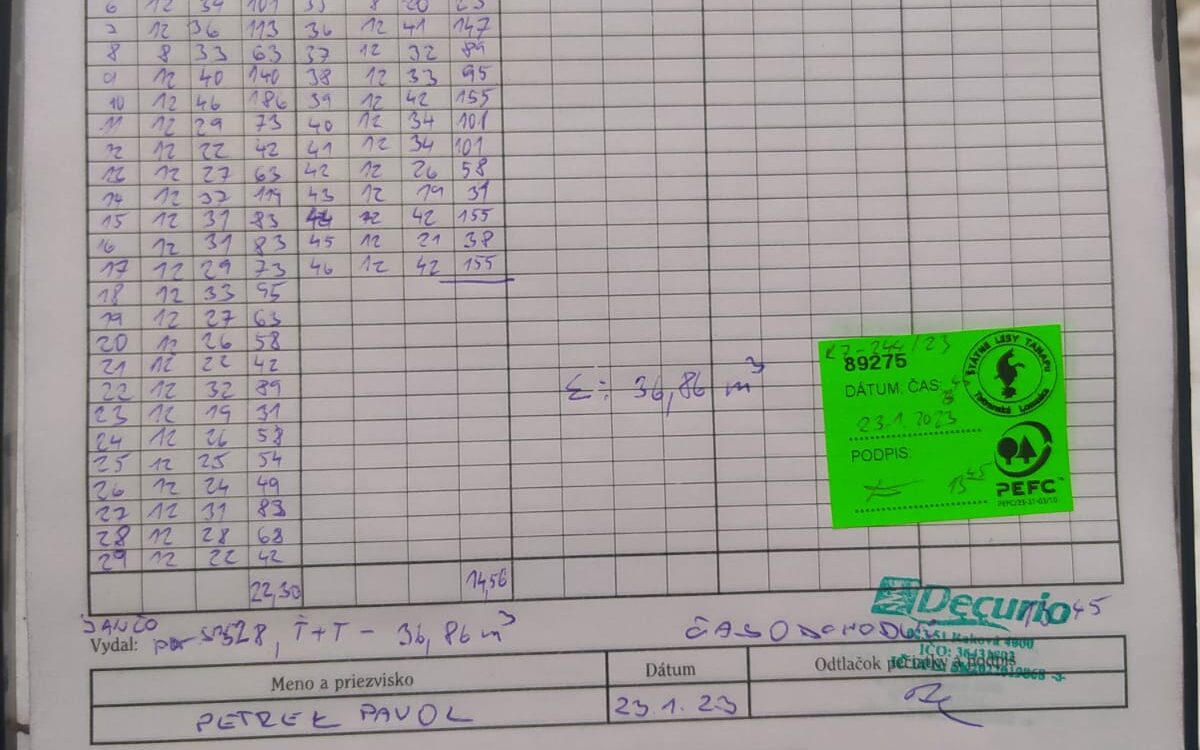 6 12 34 101 35 8 20 25
7 12 36 113 36 12 41 147
8 8 33 63 37 12 32 89
9 12 40 140 38 12 33 95
10 12 46 186 39 12 42 155
11 12 29 73 40 12 34 101
12 12 22 42 41 12 34 101
13 12 27 63 42 12 26 58
14 12 37 119 43 12 19 31
15 12 31 83 44 12 42 155
16 12 31 83 45 12 21 38
17 12 29 73 46 12 42 155
18 12 33 95
19 12 27 63
20 12 26 58
21 12 22 42
22 12 32 89
23 12 19 31
24 12 26 58
25 12 25 54
26 12 24 49
27 12 31 83
28 12 28 68
29 12 22 42
22,30 14,56
Σ: 36,86 m³
89275
DÁTUM, ČAS:
23.1.2023
PODPIS:
13 45
ŠTÁTNE LESY TANAPu
Tatranská Lomnica
PEFC
JANČO
Vydal: 528, Ť+T - 36,86 m³
ČAS ODCHODU 13 45
Decurio
Meno a priezvisko Dátum Odtlačok pečiatky a podpis
PETREK PAVOL 23.1.23